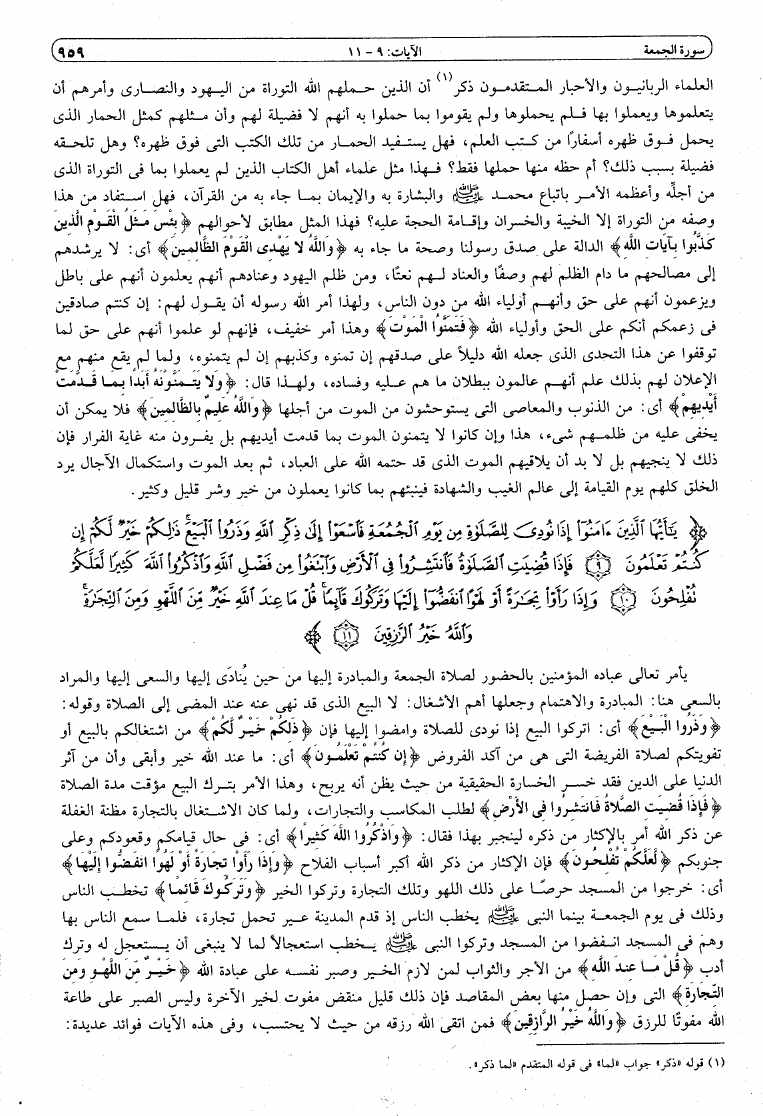 سورة الجمعة الآيات: ٩ - ١١ ٩٥٩
العلماء الربانيون والأحبار المتقدمون ذكر(١) أن الذين حملهم الله التوراة من اليهود والنصارى وأمرهم أن
يتعلموها ويعملوا بها فلم يحملوها ولم يقوموا بما حملوا به أنهم لا فضيلة لهم وأن مثلهم كمثل الحمار الذى
يحمل فوق ظهره أسفارًا من كتب العلم، فهل يستفيد الحمار من تلك الكتب التى فوق ظهره؟ وهل تلحقه
فضيلة بسبب ذلك؟ أم حظه منها حملها فقط؟ فهذا مثل علماء أهل الكتاب الذين لم يعملوا بما فى التوراة الذى
من أجلِّه وأعظمه الأمر باتباع محمد ﷺ والبشارة به والإيمان بما جاء به من القرآن، فهل استفاد من هذا
وصفه من التوراة إلا الخيبة والخسران وإقامة الحجة عليه؟ فهذا المثل مطابق لأحوالهم ﴿بِئْسَ مَثَلُ الْقَوْمِ الَّذِينَ
كَذَّبُوا بِآيَاتِ اللَّهِ﴾ الدالة على صدق رسولنا وصحة ما جاء به ﴿وَاللَّهُ لا يَهْدِى الْقَوْمَ الظَّالِمِينَ﴾ أى: لا يرشدهم
إلى مصالحهم ما دام الظلم لهم وصفًا والعناد لهم نعتًا، ومن ظلم اليهود وعنادهم أنهم يعلمون أنهم على باطل
ويزعمون أنهم على حق وأنهم أولياء الله من دون الناس، ولهذا أمر الله رسوله أن يقول لهم: إن كنتم صادقين
فى زعمكم أنكم على الحق وأولياء الله ﴿فَتَمَنَّوُا الْمَوْتَ﴾ وهذا أمر خفيف، فإنهم لو علموا أنهم على حق لما
توقفوا عن هذا التحدى الذى جعله الله دليلاً على صدقهم إن تمنوه وكذبهم إن لم يتمنوه، ولما لم يقع منهم مع
الإعلان لهم بذلك علم أنهم عالمون ببطلان ما هم عليه وفساده، ولهذا قال: ﴿وَلا يَتَمَنَّوْنَهُ أَبَدًا بِمَا قَدَّمَتْ
أَيْدِيهِمْ﴾ أى: من الذنوب والمعاصى التى يستوحشون من الموت من أجلها ﴿وَاللَّهُ عَلِيمٌ بِالظَّالِمِينَ﴾ فلا يمكن أن
يخفى عليه من ظلمهم شىء، هذا وإن كانوا لا يتمنون الموت بما قدمت أيديهم بل يفرون منه غاية الفرار فإن
ذلك لا ينجيهم بل لا بد أن يلاقيهم الموت الذى قد حتمه الله على العباد، ثم بعد الموت واستكمال الآجال يرد
الخلق كلهم يوم القيامة إلى عالم الغيب والشهادة فينبئهم بما كانوا يعملون من خير وشر قليل وكثير.
﴿ يَٰٓأَيُّهَا ٱلَّذِينَ ءَامَنُوٓا۟ إِذَا نُودِىَ لِلصَّلَوٰةِ مِن يَوْمِ ٱلْجُمُعَةِ فَٱسْعَوْا۟ إِلَىٰ ذِكْرِ ٱللَّهِ وَذَرُوا۟ ٱلْبَيْعَ ۚ ذَٰلِكُمْ خَيْرٌ لَّكُمْ إِن
كُنتُمْ تَعْلَمُونَ ﴿٩﴾ فَإِذَا قُضِيَتِ ٱلصَّلَوٰةُ فَٱنتَشِرُوا۟ فِى ٱلْأَرْضِ وَٱبْتَغُوا۟ مِن فَضْلِ ٱللَّهِ وَٱذْكُرُوا۟ ٱللَّهَ كَثِيرًا لَّعَلَّكُمْ
تُفْلِحُونَ ﴿١٠﴾ وَإِذَا رَأَوْا۟ تِجَٰرَةً أَوْ لَهْوًا ٱنفَضُّوٓا۟ إِلَيْهَا وَتَرَكُوكَ قَآئِمًا ۚ قُلْ مَا عِندَ ٱللَّهِ خَيْرٌ مِّنَ ٱللَّهْوِ وَمِنَ ٱلتِّجَٰرَةِ ۚ
وَٱللَّهُ خَيْرُ ٱلرَّٰزِقِينَ ﴿١١﴾ ﴾
يأمر تعالى عباده المؤمنين بالحضور لصلاة الجمعة والمبادرة إليها من حين يُنادَى إليها والسعى إليها والمراد
بالسعى هنا: المبادرة والاهتمام وجعلها أهم الأشغال: لا البيع الذى قد نهى عنه عند المضى إلى الصلاة وقوله:
﴿وَذَرُوا الْبَيْعَ﴾ أى: اتركوا البيع إذا نودى للصلاة وامضوا إليها فإن ﴿ذَلِكُمْ خَيْرٌ لَكُمْ﴾ من اشتغالكم بالبيع أو
تفويتكم لصلاة الفريضة التى هى من آكد الفروض ﴿إِن كُنتُمْ تَعْلَمُونَ﴾ أى: ما عند الله خير وأبقى وأن من آثر
الدنيا على الدين فقد خسر الخسارة الحقيقية من حيث يظن أنه يربح، وهذا الأمر بترك البيع مؤقت مدة الصلاة
﴿فَإِذَا قُضِيَتِ الصَّلاةُ فَانتَشِرُوا فِى الأَرْضِ﴾ لطلب المكاسب والتجارات، ولما كان الاشتغال بالتجارة مظنة الغفلة
عن ذكر الله أمر بالإكثار من ذكره لينجبر بهذا فقال: ﴿وَاذْكُرُوا اللَّهَ كَثِيرًا﴾ أى: فى حال قيامكم وقعودكم وعلى
جنوبكم ﴿لَعَلَّكُمْ تُفْلِحُونَ﴾ فإن الإكثار من ذكر الله أكبر أسباب الفلاح ﴿وَإِذَا رَأَوْا تِجَارَةً أَوْ لَهْوًا انفَضُّوا إِلَيْهَا﴾
أى: خرجوا من المسجد حرصًا على ذلك اللهو وتلك التجارة وتركوا الخير ﴿وَتَرَكُوكَ قَائِمًا﴾ تخطب الناس
وذلك فى يوم الجمعة بينما النبى ﷺ يخطب الناس إذ قدم المدينة عير تحمل تجارة، فلما سمع الناس بها
وهم فى المسجد انفضوا من المسجد وتركوا النبى ﷺ يخطب استعجالاً لما لا ينبغى أن يستعجل له وترك
أدب ﴿قُلْ مَا عِندَ اللَّهِ﴾ من الأجر والثواب لمن لازم الخير وصبر نفسه على عبادة الله ﴿خَيْرٌ مِّنَ اللَّهْوِ وَمِنَ
التِّجَارَةِ﴾ التى وإن حصل منها بعض المقاصد فإن ذلك قليل منقض مفوت لخير الآخرة وليس الصبر على طاعة
الله مفوتًا للرزق ﴿وَاللَّهُ خَيْرُ الرَّازِقِينَ﴾ فمن اتقى الله رزقه من حيث لا يحتسب، وفى هذه الآيات فوائد عديدة:
(١) قوله «ذكر» جواب «لما» فى قوله المتقدم «لما ذكر».